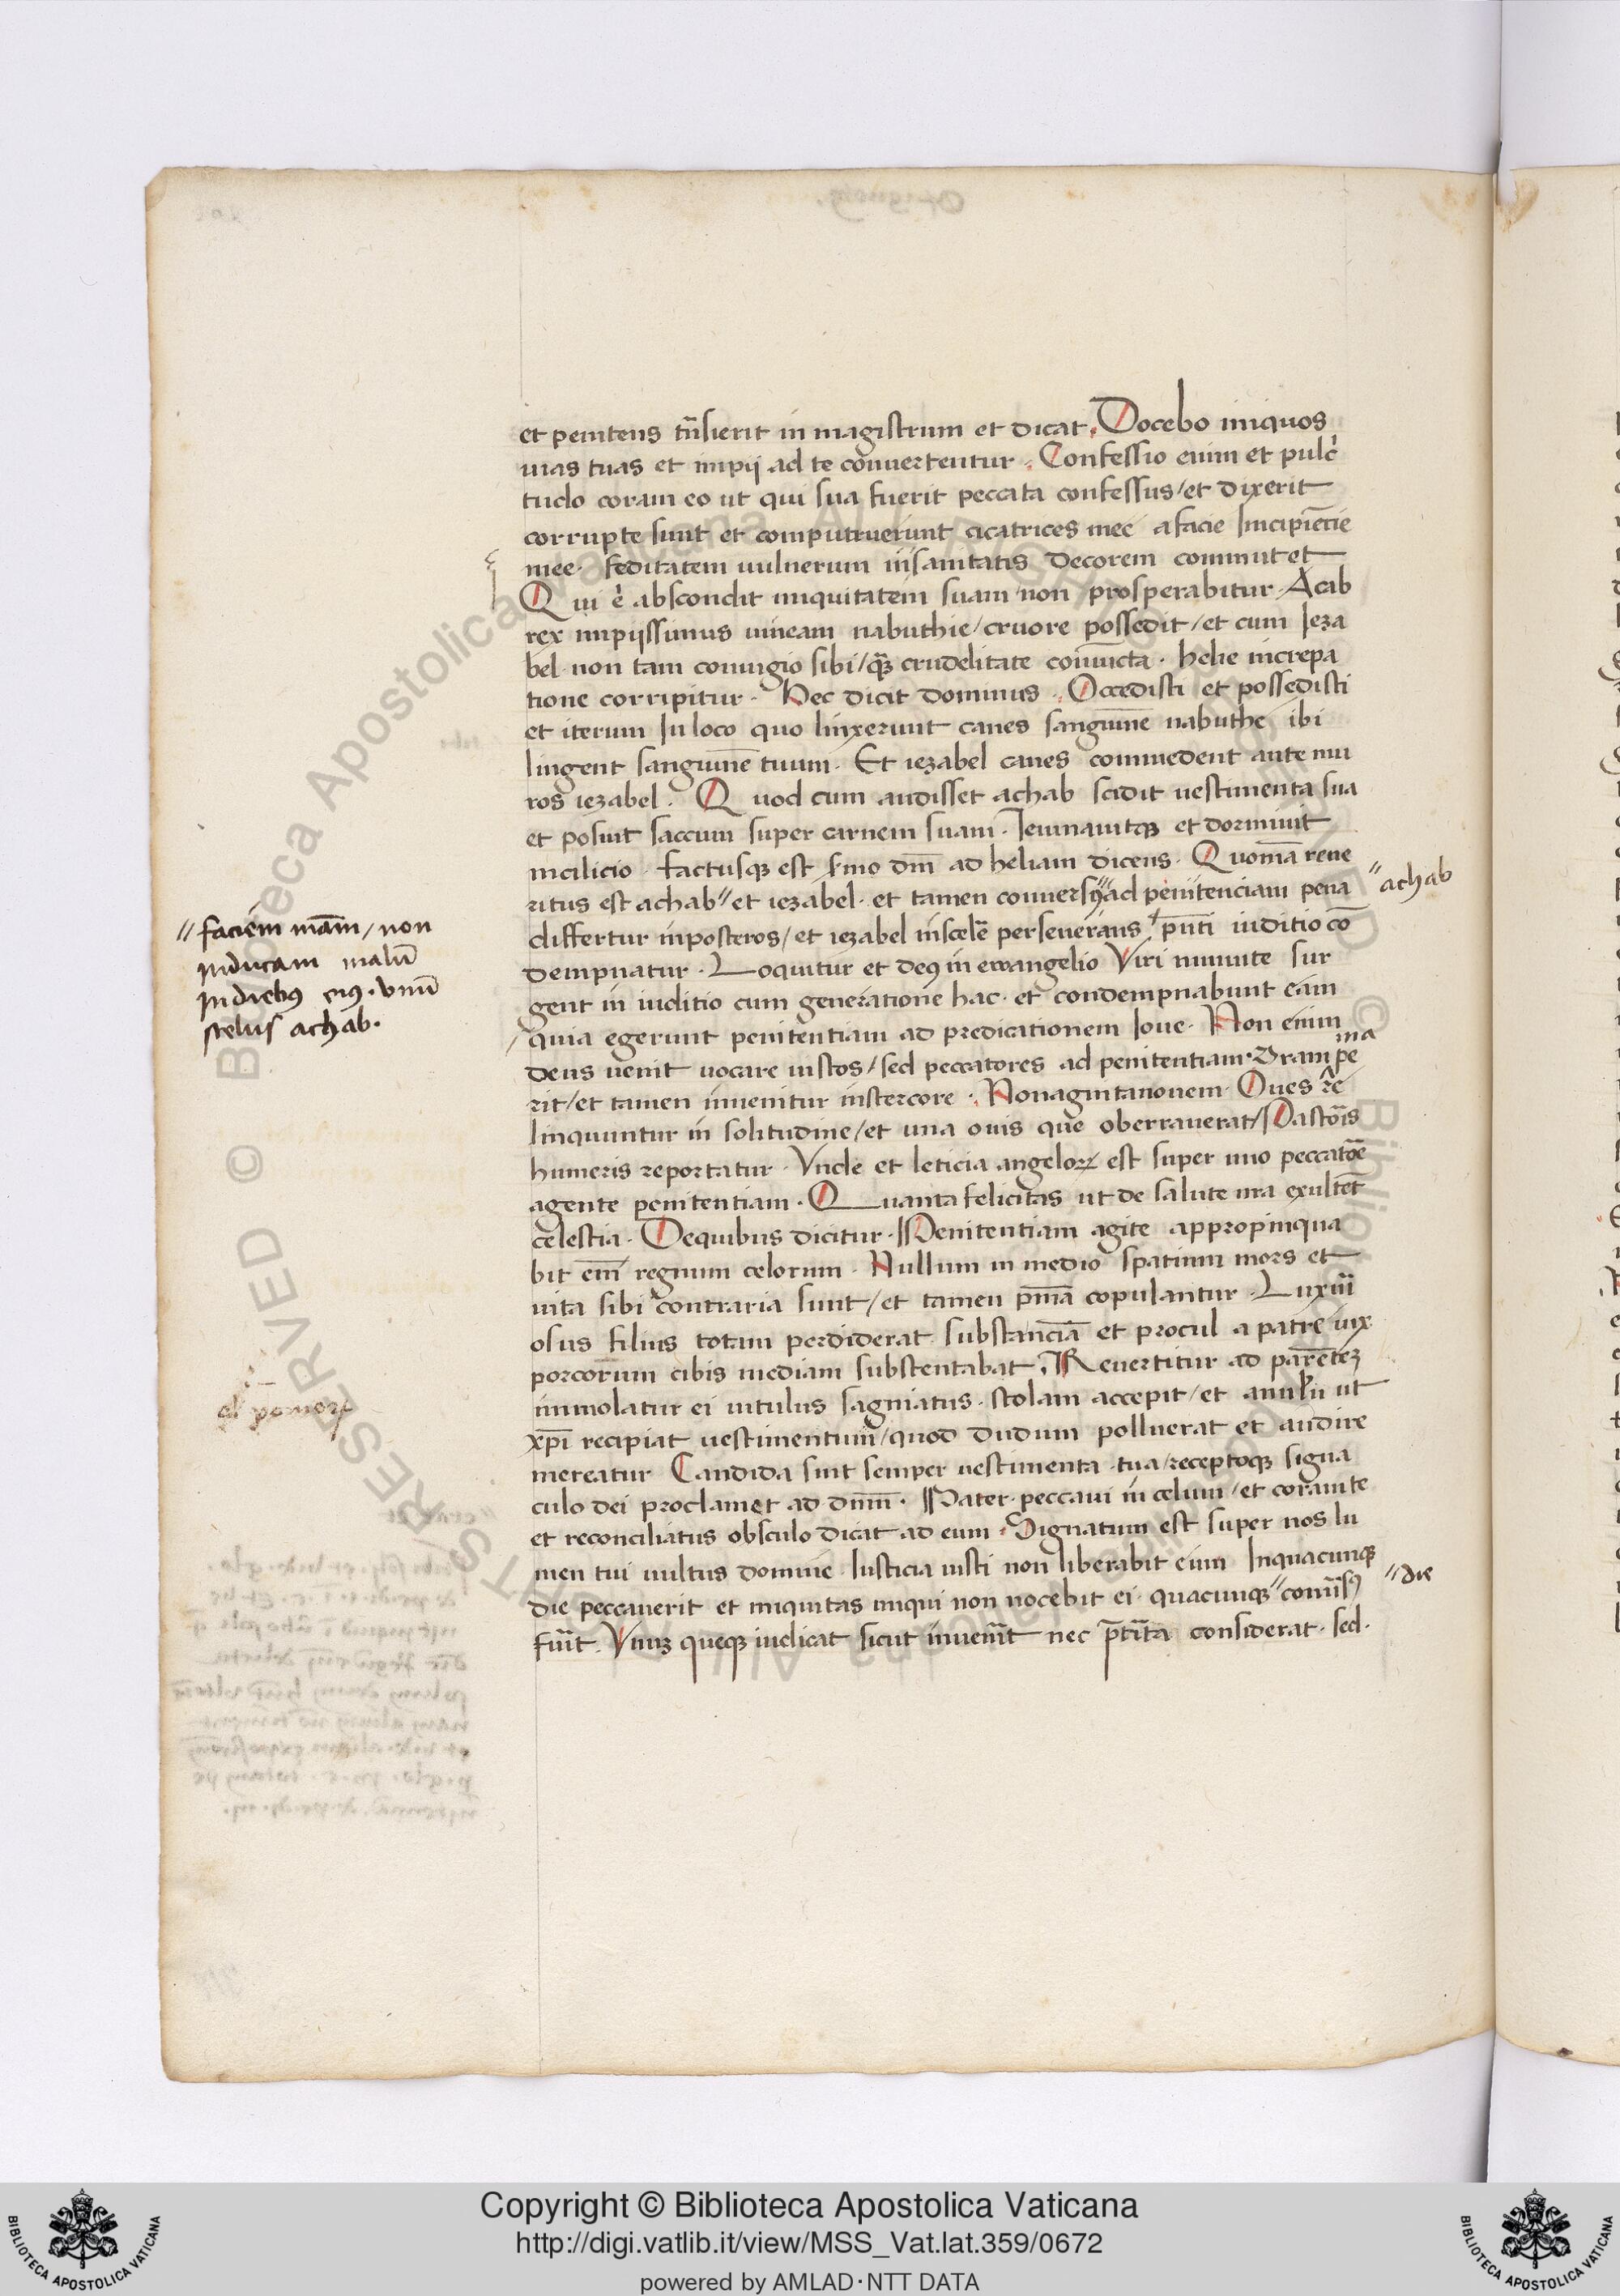 et penitens tn̄sierit in magistrum et dicat. Docebo iniquos
uias tuas et impij ad te conuertentur. Confessio enim et pulc̉
tudo coram eo ut qui sua fuerit peccata confessus/et dixerit
corrupte sunt et computruerunt cicatrices mee afacie Incipiēcie
mee. feditatem uulnerum insanitatis decorem commutet
Qui ẻ abscondit iniquitatem suam non prosperabitur. Acab
rex impijssimus uineam nabuthie/cruore possedit/et cum Ieza
bel non tam coniugio sibi/qꝫ crudelitate coniūcta. helie increpa
tione corripitur. Hec dicit dominus. Occedisti et possedisti
et iterum In loco quo linxerunt canes sanguinē nabuthe ibi
lingent sanguinē tuum. Et iezabel canes commedent ante mu
ros iezabel. Quod cum audisset achab scidit uestimenta sua
et posuit saccum super carnem suam. Ieiunauitqꝫ et dormiuit
incilicio. factusqꝫ est s̉mo dn̄i ad heliam dicens. Quoniā reue
ritus est achab〃 et iezabel. et tamen conuersꝰ〃ad penitenciam pena
〃achab
differtur inposteros/et iezabel inscelē perseuerans pn̄ti iuditio cō
dempnatur. Loquitur et deꝰ in ewangelio Viri niniuite sur
gent in iuditio cum generatione hac. et condempnabunt eam
quia egerunt penitentiam ad predicationem Ione. Non enim
deus uenit uocare iustos/sed peccatores ad penitentiam. Dram pe
ina
rit/et tamen inuenitur instercore. Nonagintanouem Oues re
linquuntur in solitudine/et una ouis que oberrauerat/Pastoris
humeris reportatur. Vnde et leticia angeloꝝ est super uno peccatoē
agente penitentiam. Quanta felicitas ut de salute nr̄a exultēt
celestia. Dequibus dicitur. Penitentiam agite appropinqua
bit em̄ regnum celorum. Nullum in medio spatium mors et
uita sibi contraria sunt/et tamen pn̄iā copulantur. Luxur̄i
osus filius totam perdiderat substanciā et procul a patre uix
porcorum cibis mediam substentabat. Reuertitur ad parētēꝫ
immolatur ei uitulus saginatus. stolam accepit/et anulū ut
xp̄i recipiat uestimentum/quod dudum polluerat et audire
mereatur Candida sint semper uestimenta tua/receptoqꝫ signa
culo dei proclamet ad dn̄m. Pater. peccaui in celum/et coram te
et reconciliatus obsculo dicat ad eum. Signatum est super nos lu
men tui uultus domine. Iusticia iusti non liberabit eum Inquacunqꝫ
die peccauerit et iniquitas iniqui non nocebit ei quacunqꝫ〃conūsꝰ
〃die
fūit. Vnūꝫ quēqꝫ iudicat sicut inuenīt nec p̄tīta considerat. sed.
〃faciem meam/non
inducam malū
in diebꝰ eiꝰ. Vnū
scelus achab.
al pomoꝝ
Copyright © Biblioteca Apostolica Vaticana
http://digi.vatlib.it/view/MSS_Vat.lat.359/0672
powered by AMLAD·NTT DATA
BIBLIOTECA APOSTOLICA VATICANA
BIBLIOTECA APOSTOLICA VATICANA